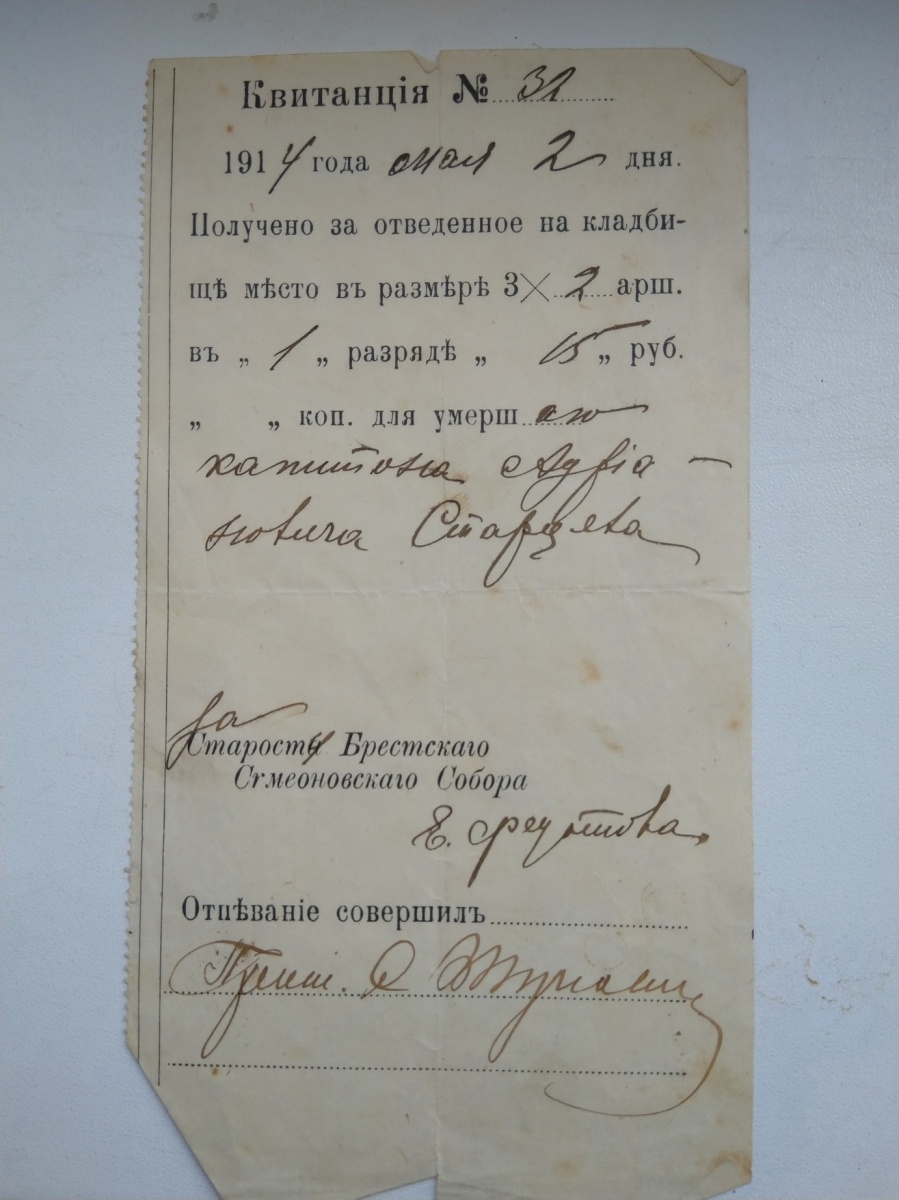 Квитанція № 32
1914 года мая 2 дня.
Получено за отведенное на кладби-
щѣ мѣсто въ размѣрѣ 3× 2 арш.
въ „ 1 „ разрядѣ „ 15 „ руб.
„ „ коп. для умерш аго
капитона Адріа-
новича Старцева
За
Старосты Брестскаго
Сѵмеоновскаго Собора
Е.
Отпѣваніе совершилъ